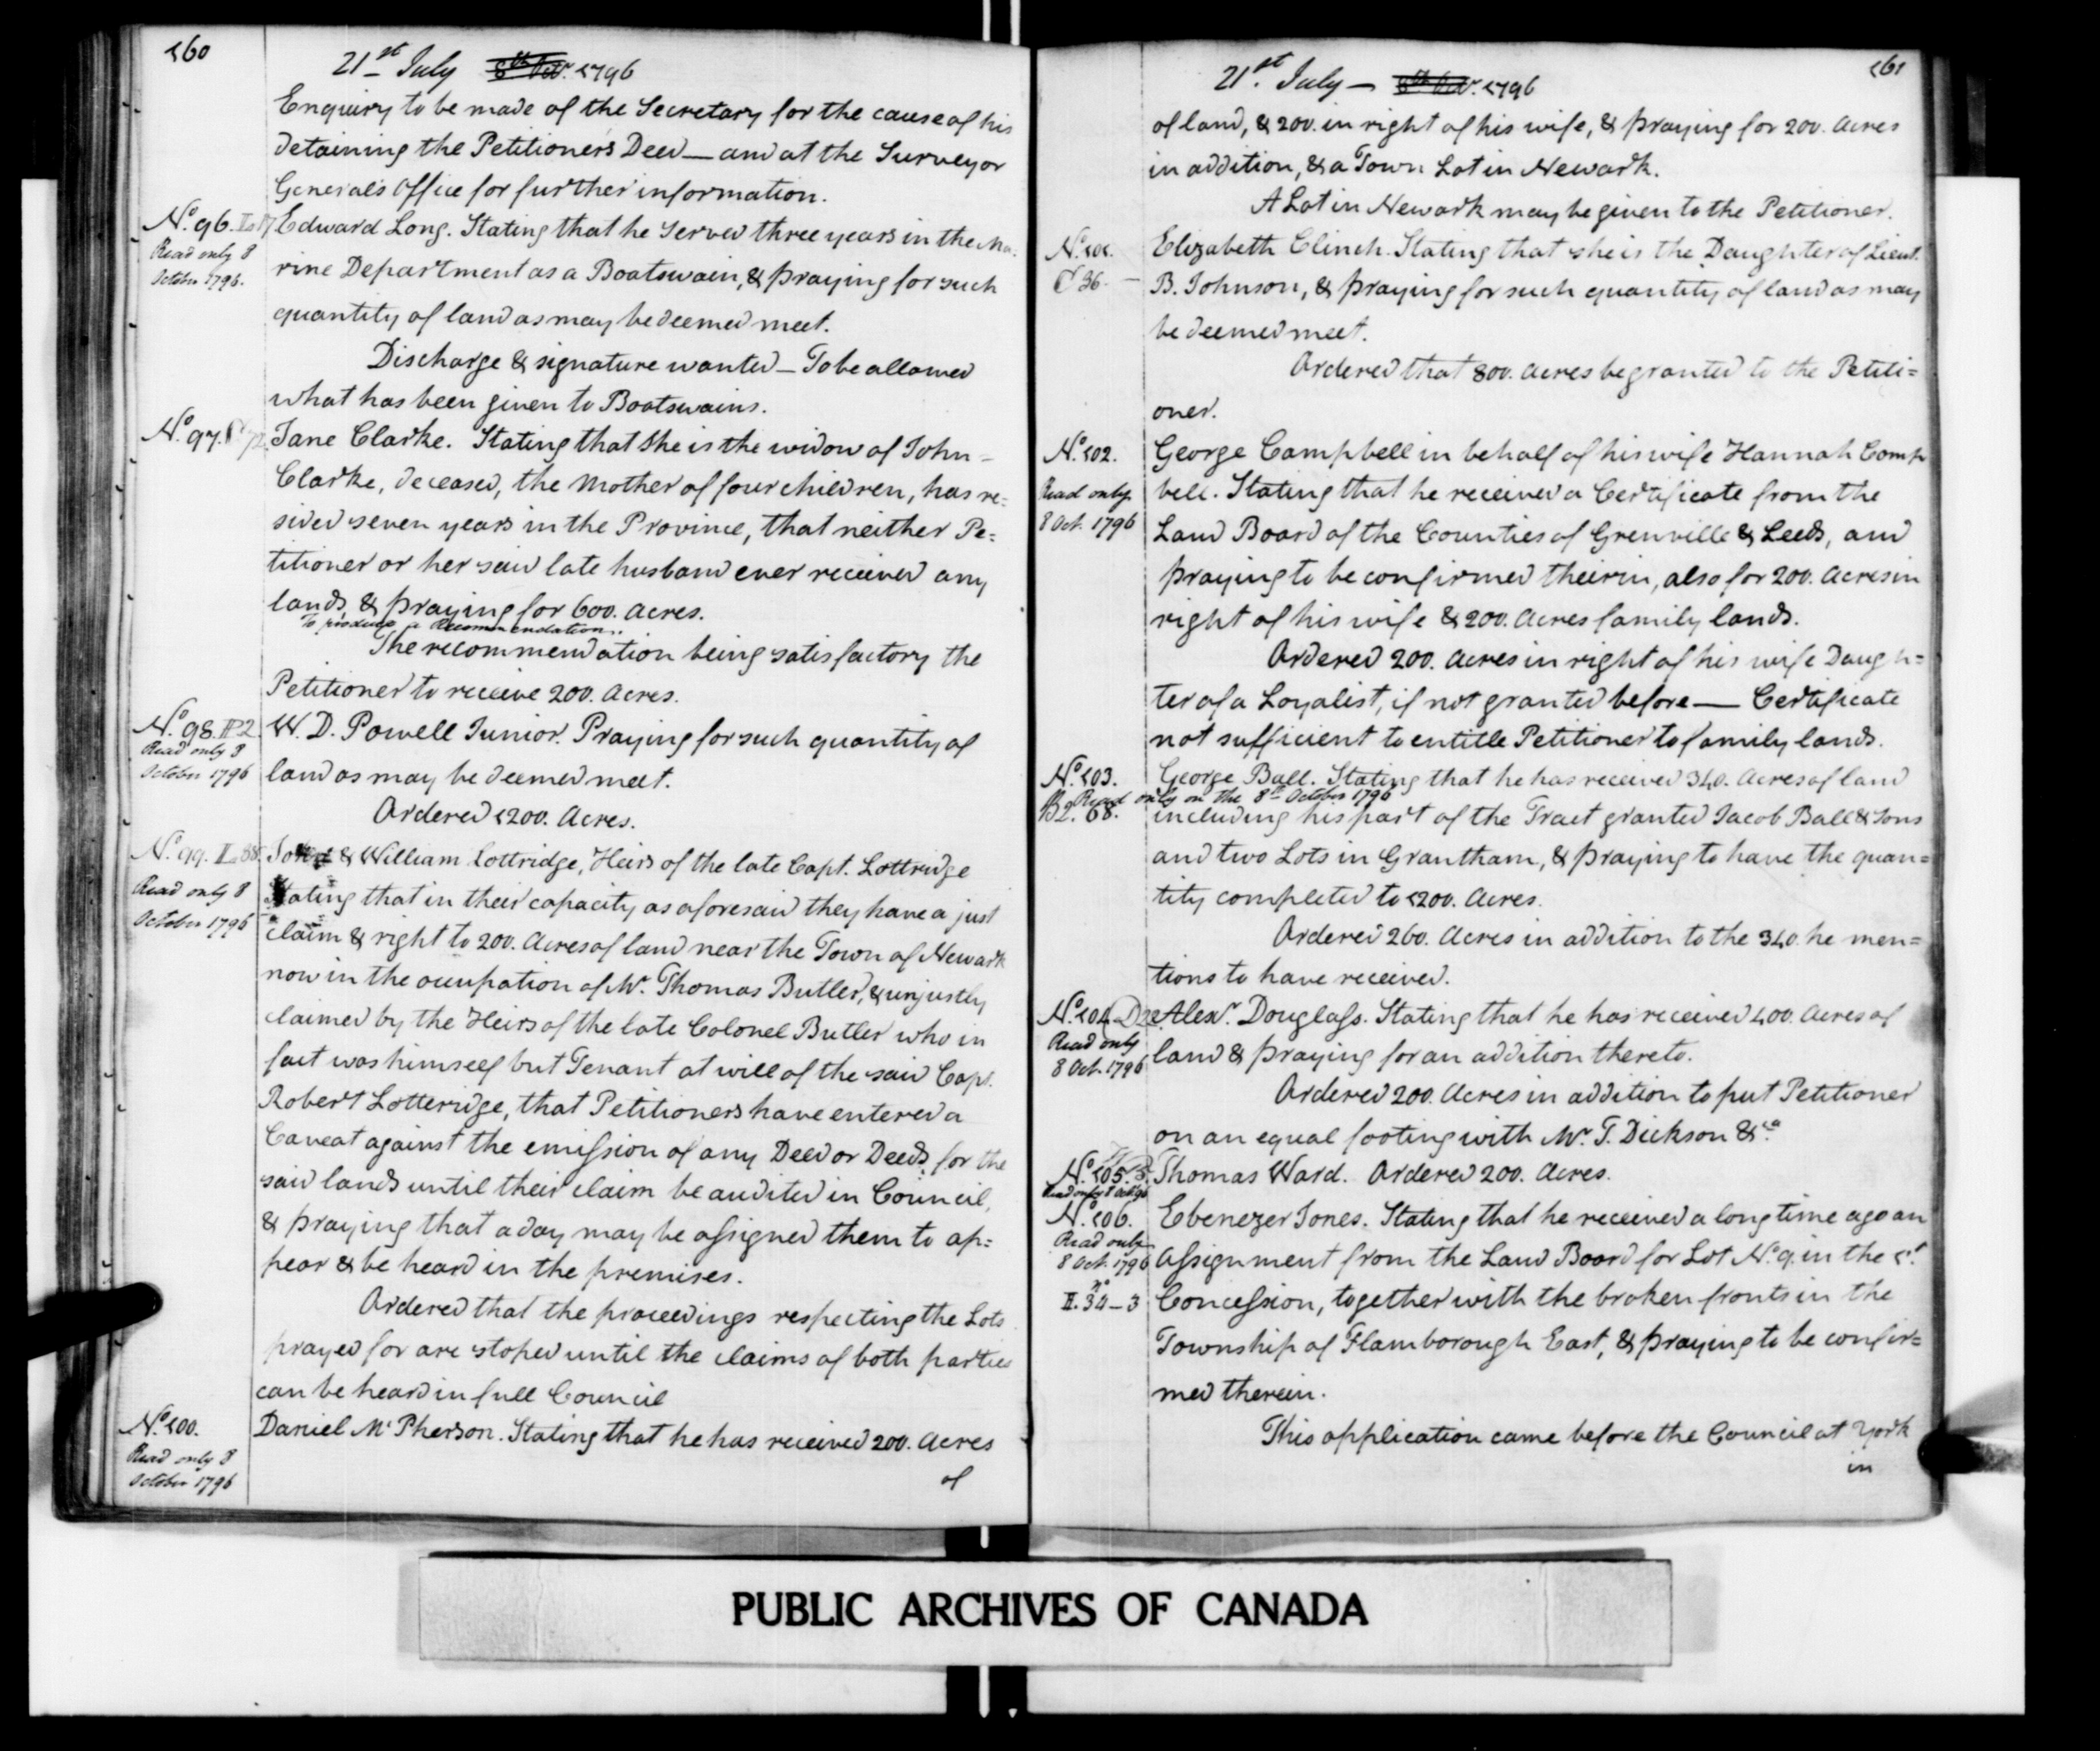 160
21st July 8th Oct. 1796
Enquiry to be made of the Secretary for the cause of his
detaining the Petitioner's Deed — and at the Surveyor
General's Office for further information.
No. 96. L 17
Read only 8
October 1796.
Edward Long. Stating that he served three years in the Ma-
rine Department as a Boatswain, & praying for such
quantity of land as may be deemed meet.
Discharge & signature wanted — To be allowed
what has been given to Boatswains.
No. 97. C 72
Jane Clarke. Stating that She is the widow of John
Clarke, deceased, the Mother of four children, has re=
sided seven years in the Province, that neither Pe=
titioner or her said late husband ever received any
lands, & praying for 600. Acres.
To produce a Recommendation.
The recommendation being satisfactory the
Petitioner to receive 200. Acres.
No. 98. P 2
Read only 8
October 1796
W. D. Powell Junior. Praying for such quantity of
land as may be deemed meet.
Ordered 1200. Acres.
No. 99. L 88
Read only 8
October 1796
& William Lottridge, Heirs of the late Capt. Lottridge
Stating that in their capacity as aforesaid they have a just
claim & right to 200. Acres of land near the Town of Newark
now in the occupation of Mr. Thomas Butler, & unjustly
claimed by the Heirs of the late Colonel Butler who in
fact was himself but Tenant at will of the said Capt.
Robert Lotteridge, that Petitioners have entered a
Caveat against the emission of any Deed or Deeds for the
said lands until their claim be audited in Council,
& praying that a day may be assigned them to ap=
pear & be heard in the premises.
Ordered that the proceedings respecting the Lots
prayed for are stoped until the claims of both parties
can be heard in full Council
No. 100.
Read only 8
October 1796
Daniel McPherson. Stating that he has received 200. Acres
of
161
21st. July — 8th Oct. 1796
of land, & 200. in right of his wife, & praying for 200. Acres
in addition, & a Town Lot in Newark.
A Lot in Newark may be given to the Petitioner.
No. 101.
C 36. —
Elizabeth Clinch. Stating that she is the Daughter of Lieut.
B. Johnson, & praying for such quantity of land as may
be deemed meet.
Ordered that 800. Acres be granted to the Petiti=
oner.
No. 102.
Read only
8 Oct. 1796
George Campbell in behalf of his wife Hannah Camp
bell. Stating that he received a Certificate from the
Land Board of the Counties of Grenville & Leeds, and
praying to be confirmed theirin, also for 200. Acres in
right of his wife & 200. Acres family lands.
Ordered 200. Acres in right of his wife Daugh=
ter of a Loyalist, if not granted before — Certificate
not sufficient to entitle Petitioner to family lands.
No. 103.
B 2. 68.
George Ball. Stating that he has received 340. Acres of land
Read only on the 8th October 1796
including his part of the Tract granted Jacob Ball & Sons
and two Lots in Grantham, & praying to have the quan=
tity completed to 1200. Acres.
Ordered 260. Acres in addition to the 340. he men=
tions to have received.
No. 104
Read only
8 Oct. 1796
Alexr. Douglass. Stating that he has received 400. Acres of
land & praying for an addition thereto.
Ordered 200. Acres in addition to put Petitioner
on an equal footing with Mr. T. Dickson &ca.
No. 105.
Read only 8 Oct 96
Thomas Ward. Ordered 200. Acres.
No. 106.
Read only
8 Oct. 1796
Ebenezer Jones. Stating that he received a long time ago an
Assignment from the Land Board for Lot No. 9. in the 1st.
Concession, together with the broken fronts in the
Township of Flamborough East, & praying to be confir=
med therein.
This application came before the Council at York
in
PUBLIC ARCHIVES OF CANADA